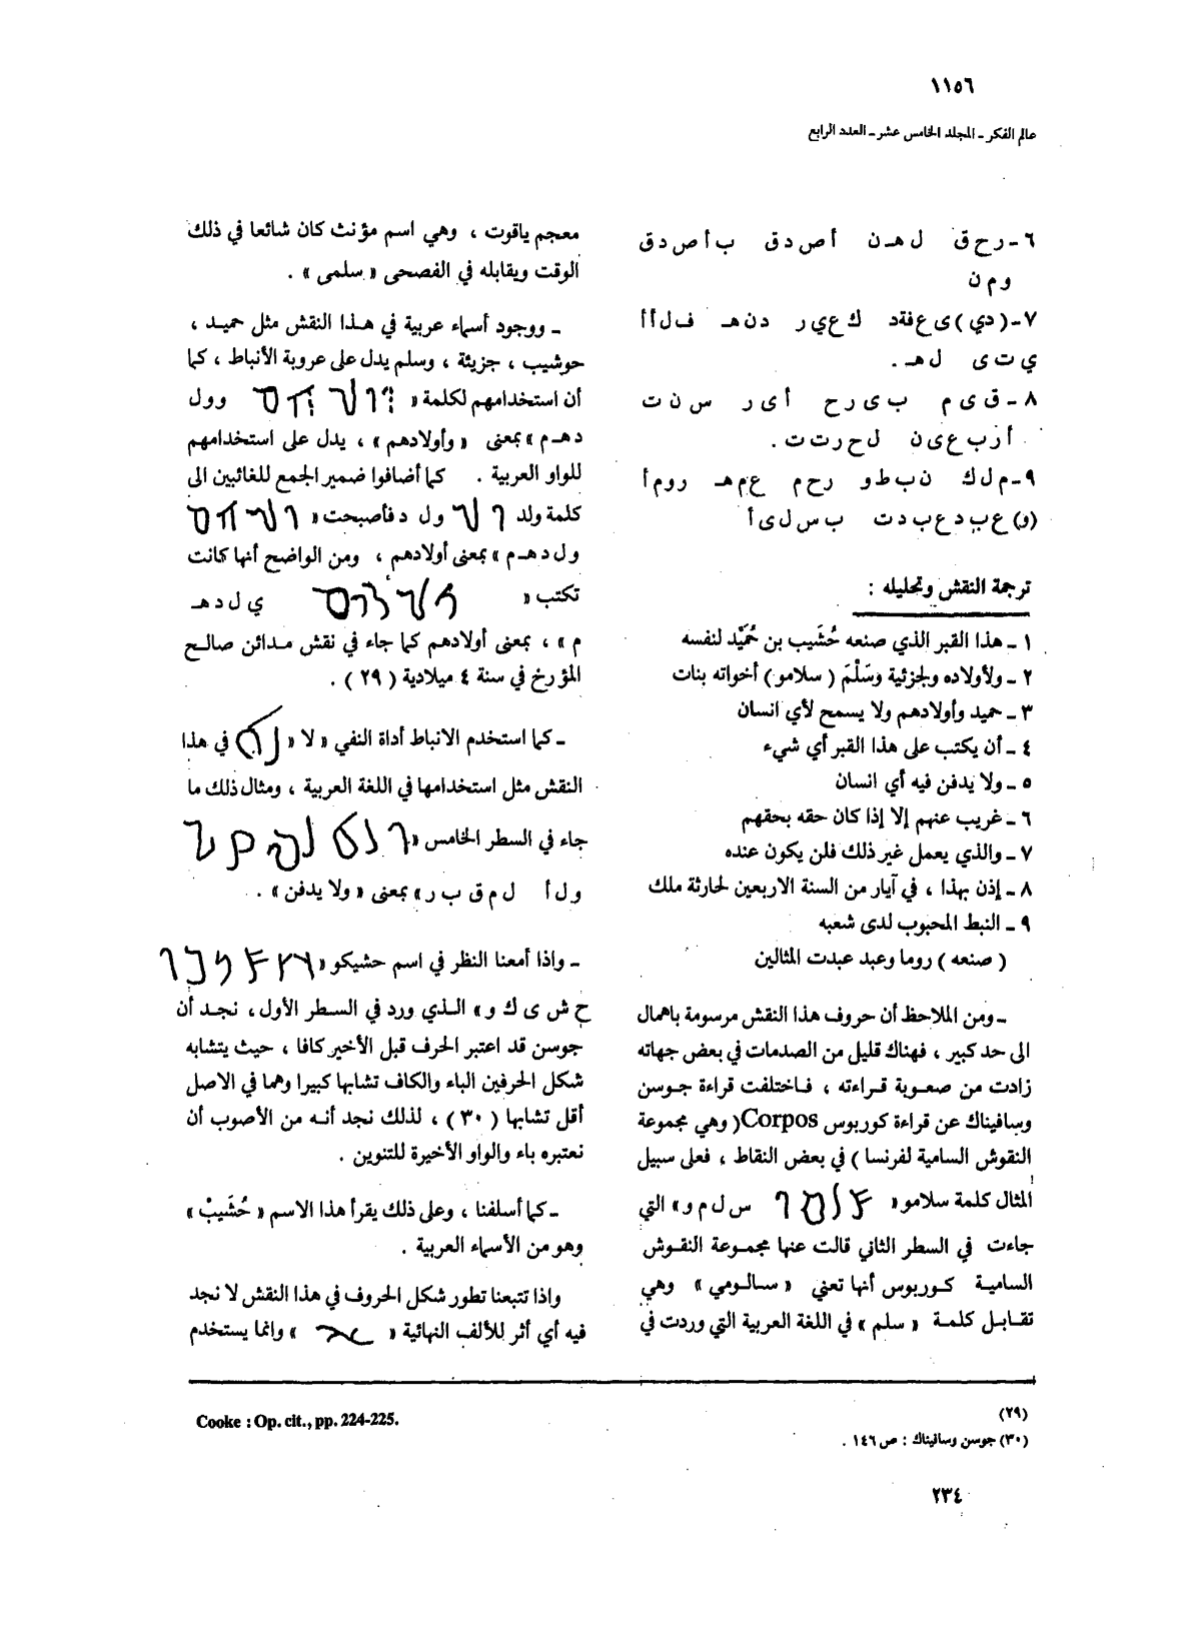 ١١٥٦
عالم الفكر ـ المجلد الخامس عشر ـ العدد الرابع
٦ ـ ر ح ق ل هـ ن أ ص د ق ب أ ص د ق
و م ن
٧ ـ (د ي) ى ع ف د ك ع ي ر د ن هـ ف ل أ أ
ي ت ى ل هـ .
٨ ـ ق ي م ب ى ر ح أ ى ر س ن ت
أ ر ب ع ى ن ل ح ر ت ت .
٩ ـ م ل ك ن ب ط و ر ح م ع م هـ ر و م أ
(و) ع ب د ع ب د ت ب س ل ى أ
ترجمة النقش وتحليله :
١ ـ هذا القبر الذي صنعه حُشَيب بن حُمَيْد لنفسه
٢ ـ ولأولاده ولجزئية وسَلْمَ ( سلامو ) أخواته بنات
٣ ـ حميد وأولادهم ولا يسمح لأي انسان
٤ ـ أن يكتب على هذا القبر أي شيء
٥ ـ ولا يدفن فيه أي انسان
٦ ـ غريب عنهم إلا إذا كان حقه بحقهم
٧ ـ والذي يعمل غير ذلك فلن يكون عنده
٨ ـ إذن بهذا ، في آيار من السنة الاربعين لحارثة ملك
٩ ـ النبط المحبوب لدى شعبه
( صنعه ) روما وعبد عبدت المثالين
ـ ومن الملاحظ أن حروف هذا النقش مرسومة باهمال
الى حد كبير ، فهناك قليل من الصدمات في بعض جهاته
زادت من صعوبة قراءته ، فاختلفت قراءة جوسن
وسافيناك عن قراءة كوربوس Corpos( وهي مجموعة
النقوش السامية لفرنسا ) في بعض النقاط ، فعلى سبيل
المثال كلمة سلامو « س ل م و » التي
جاءت في السطر الثاني قالت عنها مجموعة النقوش
السامية كوربوس أنها تعني « سالومي » وهي
تقابل كلمة « سلم » في اللغة العربية التي وردت في
معجم ياقوت ، وهي اسم مؤنث كان شائعا في ذلك
الوقت ويقابله في الفصحى « سلمى » .
ـ ووجود أسماء عربية في هذا النقش مثل حميد ،
حوشيب ، جزيئة ، وسلم يدل على عروبة الأنباط ، كما
أن استخدامهم لكلمة « وول
دهـ م » بمعنى « وأولادهم » ، يدل على استخدامهم
للواو العربية . كما أضافوا ضمير الجمع للغائبين الى
كلمة ولد و ل د فأصبحت «
ول دهـ م » بمعنى أولادهم ، ومن الواضح أنها كانت
تكتب « ي ل د هـ
م » ، بمعنى أولادهم كما جاء في نقش مدائن صالح
المؤرخ في سنة ٤ ميلادية ( ٢٩ ) .
ـ كما استخدم الانباط أداة النفي « لا « في هذا
النقش مثل استخدامها في اللغة العربية ، ومثال ذلك ما
جاء في السطر الخامس «
و ل أ ل م ق ب ر » بمعنى « ولا يدفن » .
ـ واذا أمعنا النظر في اسم حشيكو «
ح ش ى ك و » الذي ورد في السطر الأول ، نجد أن
جوسن قد اعتبر الحرف قبل الأخير كافا ، حيث يتشابه
شكل الحرفين الباء والكاف تشابها كبيرا وهما في الاصل
أقل تشابها ( ٣٠ ) ، لذلك نجد أنه من الأصوب أن
نعتبره باء والواو الأخيرة للتنوين .
ـ كما أسلفنا ، وعلى ذلك يقرأ هذا الاسم « حُشَيبْ »
وهو من الأسماء العربية .
واذا تتبعنا تطور شكل الحروف في هذا النقش لا نجد
فيه أي أثر للألف النهائية « » وانما يستخدم
(٢٩) Cooke : Op. cit., pp. 224-225.
(٣٠) جوسن وسافيناك : ص ١٤٦ .
٢٣٤